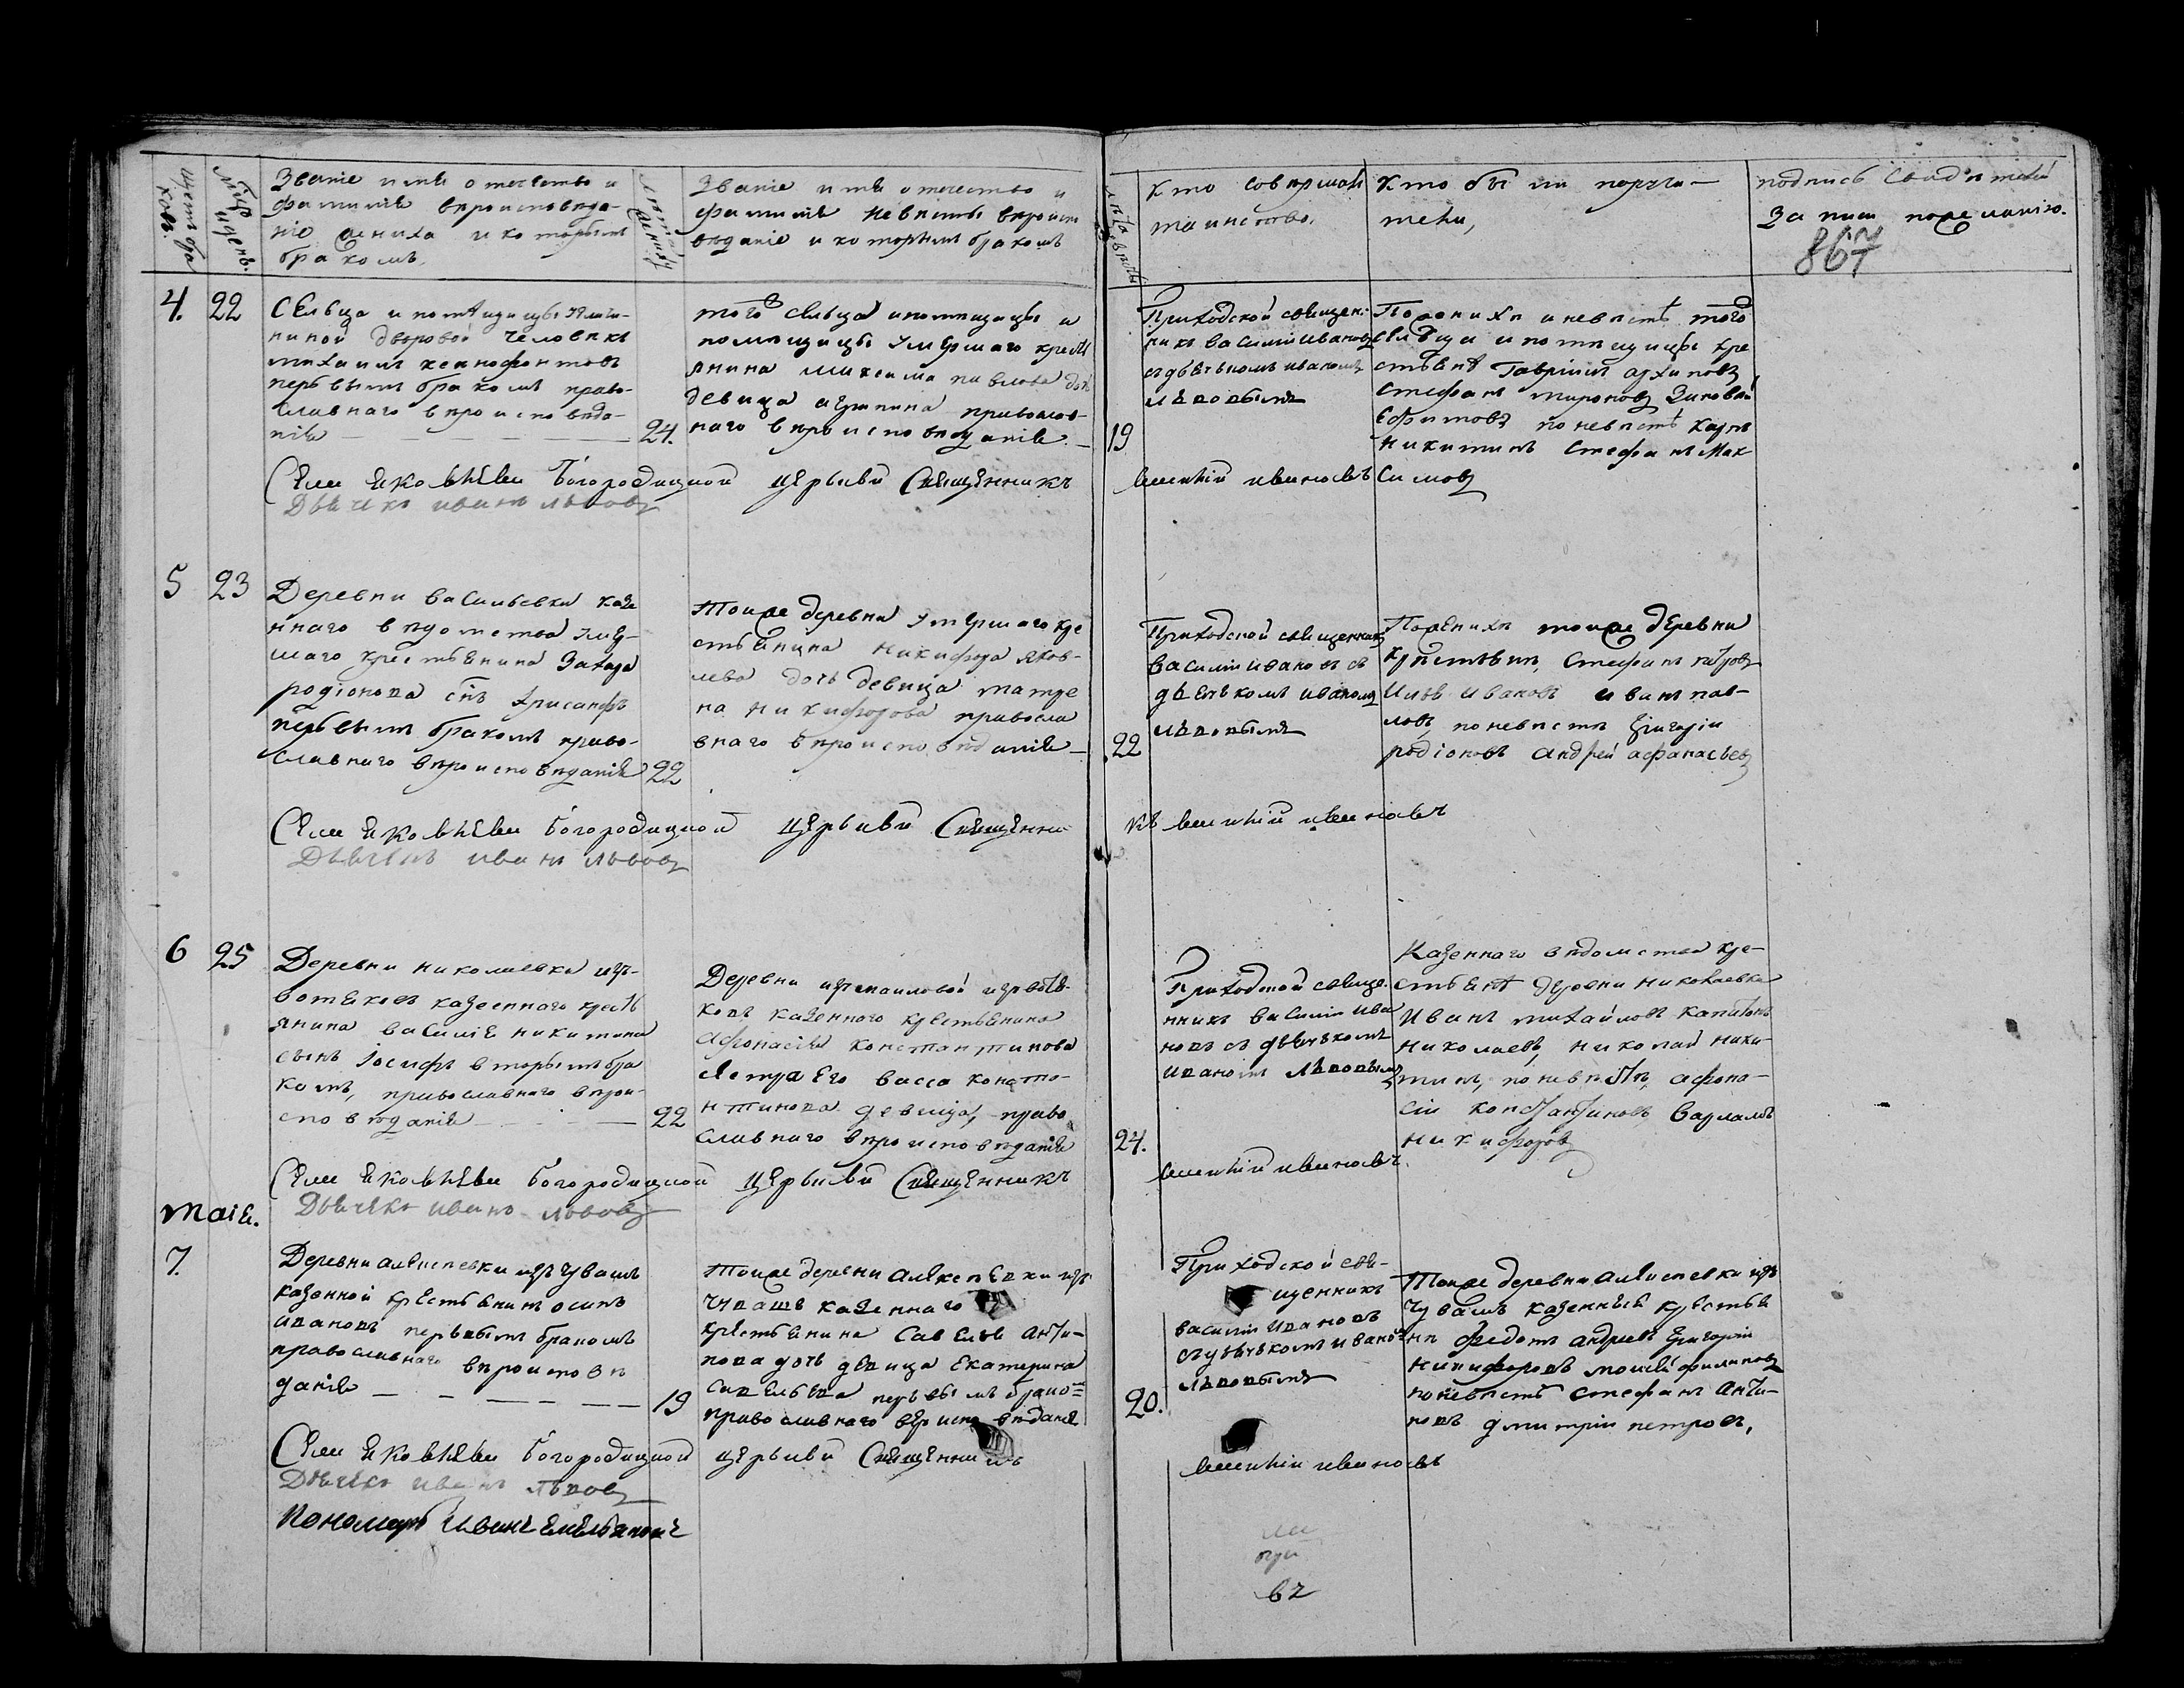 щетъ бра
ковъ.
Мѣсяцъ
и день.
Званіе имя отечество и
фамилія вѣроисповѣда-
ніе жениха и которымъ
бракомъ
лѣта
жениху
Званіе имя отечество и
фамиліе невѣсты вѣроисп
овѣданіе и которымъ бракомъ
лѣта невѣсты
Кто совершалъ
таинство.
Кто были поручи-
тели,
подпись свидѣтелей
записи по желанію.
867
4.
22
Сельца и помѣщицы
ниной дворовой человекъ
михаилъ ксенофонтовъ
первымъ бракомъ право-
славнаго вѣроисповѣда-
нія
24.
того сельца и помѣщицы и
помѣщицы умершаго кресть
янина максима павлова дочь
девица православ-
наго вѣроисповѣданія
19
Приходской священ-
никъ василій Ивановъ
съ дьячькомъ иваномъ
львовымъ
По женихѣ и невѣстѣ того
сельца и помѣщицы кре
стьянѣ Гавріилъ архиповъ
стефанъ мироновъ Зиновей
Ефимовъ по невѣстѣ Карпъ
Никитинъ Стефанъ Мак
симовъ
Села Богородицкой церькви Священникъ
василій ивановъ
Дьячекъ иванъ львовъ
5
23
Деревни васильевки казе
ннаго вѣдомства умер-
шаго крестьянина Захара
родіонова снъ хрисанфъ
первымъ бракомъ право-
славнаго вѣроисповѣданія
22
Тойже деревни умершаго кре
стьянина Никифора яков-
лева дочь девица матре
на Никифорова правосла
внаго вѣроисповѣданія
22
Приходской священникъ
василій ивановъ съ
дьячькомъ иваномъ
львовымъ
По женихѣ тоиже деревни
крестьянѣ, Стефанъ петровъ
Ивановъ иванъ пав-
ловъ, по невѣстѣ Григорій
родіоновъ Андрей афанасьевъ
Села Богородицкой церькви Священни
къ василій ивановъ
Дьячекъ иванъ львовъ
6
25
Деревни николаевки изъ
вотяковъ казеннаго кресть
янина василія никитина
сынъ іосифъ вторымъ бра
комъ, православнаго вѣрои-
сповѣданія
22
Деревни измаиловой изъ вотя-
ковъ казенного крестьянина
Афонасія константинова
сестра Его васса конста-
нтинова девица, право
славнаго вѣроисповѣданія
24.
Приходской свяще-
нникъ василій ива
новъ съ дьячькомъ
иваномъ львовымъ
Казеннаго вѣдомства кре-
стьянѣ деревни николаевки
Иванъ михайловъ капитонъ
николаевъ, николай ники-
тинъ, по невѣстѣ, афона-
сій константиновъ варламъ
никифоровъ
Села Богородицкой церькви Священникъ
василій ивановъ.
Дьячекъ иванъ львовъ
маія.
7.
Деревни алексѣевки изъ чувашъ
казенной крестьянинъ осипъ
ивановъ первымъ бракомъ
православнаго вѣроисповѣ
данія
19
Тоиже деревни алексѣевки изъ
чувашъ казеннаго
крестьянина Савелья анти-
пова дочь девица Екатерина
Савельева первымъ брако=
православнаго вѣроисповѣданія
20.
Приходской свя-
щенникъ
василій ивановъ
съ дьячькомъ ивано
львовымъ
Тоиже деревни алексѣевки изъ
чувашъ казенныя крестья
нѣ федотъ андреевъ Григорій
никифоровъ моисей филиповъ
по невѣстѣ стефанъ анти-
повъ дмитрій петровъ,
Села Богородицкой церькви Священникъ
василій ивановъ
Дьячекъ иванъ львовъ
Пономарь Иванъ Емельяновъ